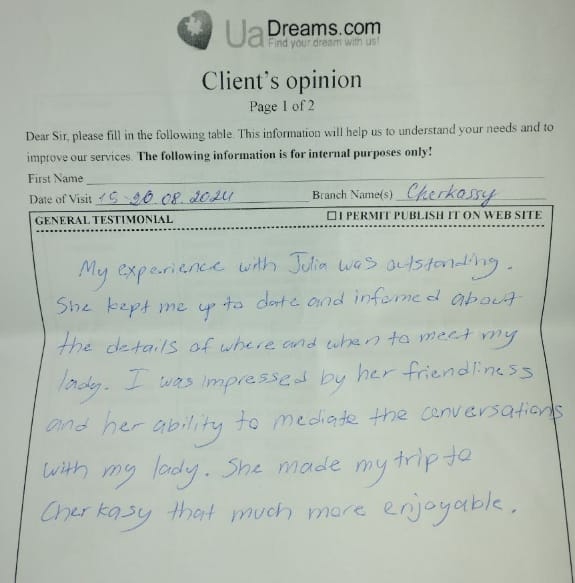 UaDreams.com
Find your dream with us!
Client's opinion
Page 1 of 2
Dear Sir, please fill in the following table. This information will help us to understand your needs and to
improve our services. The following information is for internal purposes only!
First Name
Date of Visit 15-20.08.2024 Branch Name(s) Cherkassy
GENERAL TESTIMONIAL ☐I PERMIT PUBLISH IT ON WEB SITE
My experience with Julia was outstanding.
She kept me up to date and informed about
the details of where and when to meet my
lady. I was impressed by her friendliness
and her ability to mediate the conversations
with my lady. She made my trip to
Cherkasy that much more enjoyable.